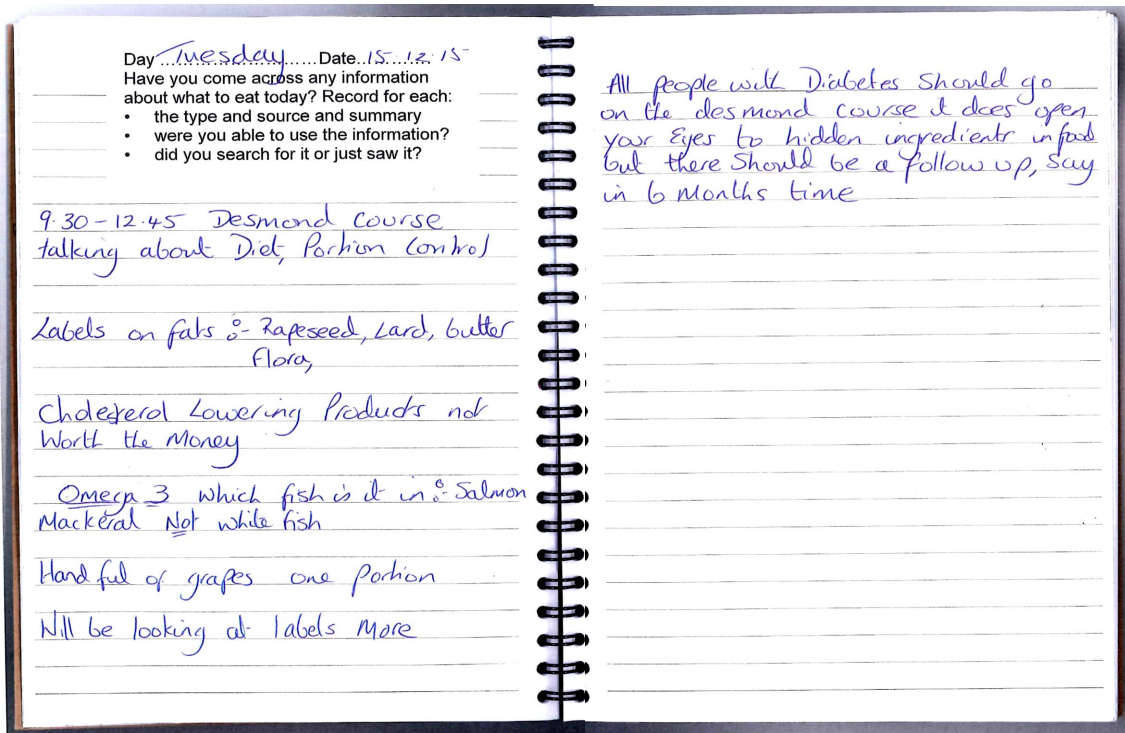 Day Tuesday Date 15.12.15
Have you come across any information
about what to eat today? Record for each:
• the type and source and summary
• were you able to use the information?
• did you search for it or just saw it?
9.30-12.45 Desmond Course
talking about Diet, Portion Control
Labels on fats :- Rapeseed, Lard, butter
Flora,
Cholesterol Lowering Products not
Worth the Money
Omega 3 which fish is it in :- Salmon
Mackeral Not white fish
Handful of grapes one portion
Will be looking at labels more
All people with Diabetes Should go
on the desmond course it does open
your Eyes to hidden ingredients in food
but there Should be a follow up, Say
in 6 Months time